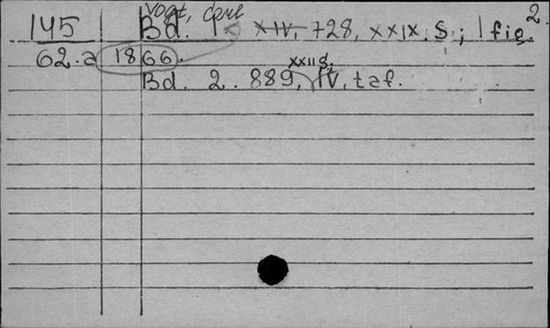 Vogt, Carl 2.
145 Bd. 1. XIV, 728, XXIX. S.; 1 fig.
62.a 1866.
XXII S.
Bd. 2. 889, IV, taf.